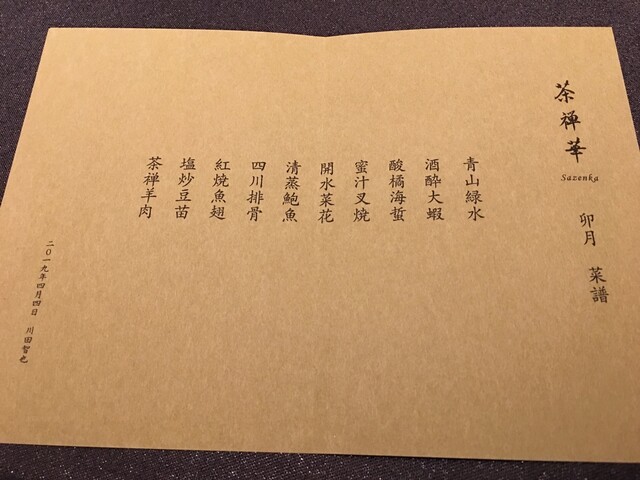 茶禅華
Sazenka
卯月　菜譜
青山緑水
酒醉大蝦
酸橘海蜇
蜜汁叉焼
開水菜花
清蒸鮑魚
四川排骨
紅焼魚翅
塩炒豆苗
茶禅羊肉
二〇一九年四月四日　川田智也